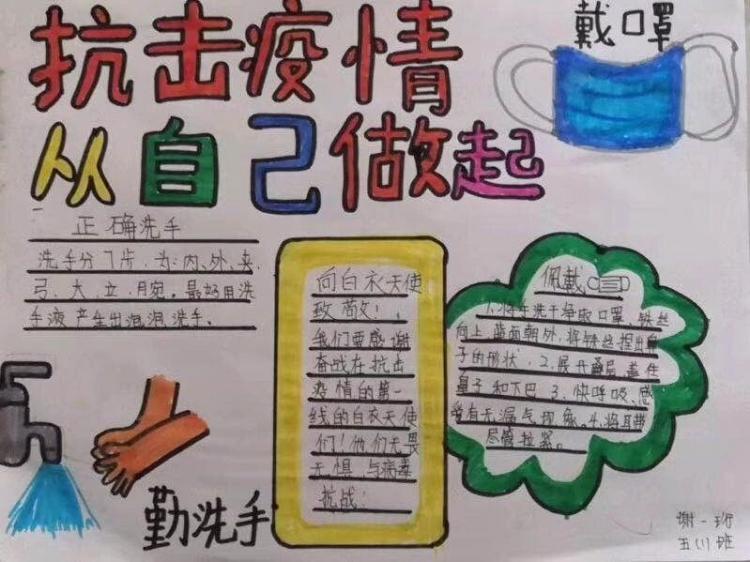 抗击疫情
戴口罩
从自己做起
正确洗手
洗手分7步,为:内、外、夹、
弓、大、立、腕。最好用洗
手液产生出泡泡洗手。
向白衣天使
致敬!
我们要感谢
奋战在抗击
疫情的第一
线的白衣天使
们!他们无畏
无惧,与病毒
抗战!
佩戴
1.将手洗干净取口罩,铁丝
向上,蓝面朝外,将铁丝捏出鼻
子的形状。2.展开叠层,盖住
鼻子和下巴。3.快呼吸,感
觉有无漏气现象。4.将耳带
尽管拉紧。
勤洗手
谢一珩
五(1)班